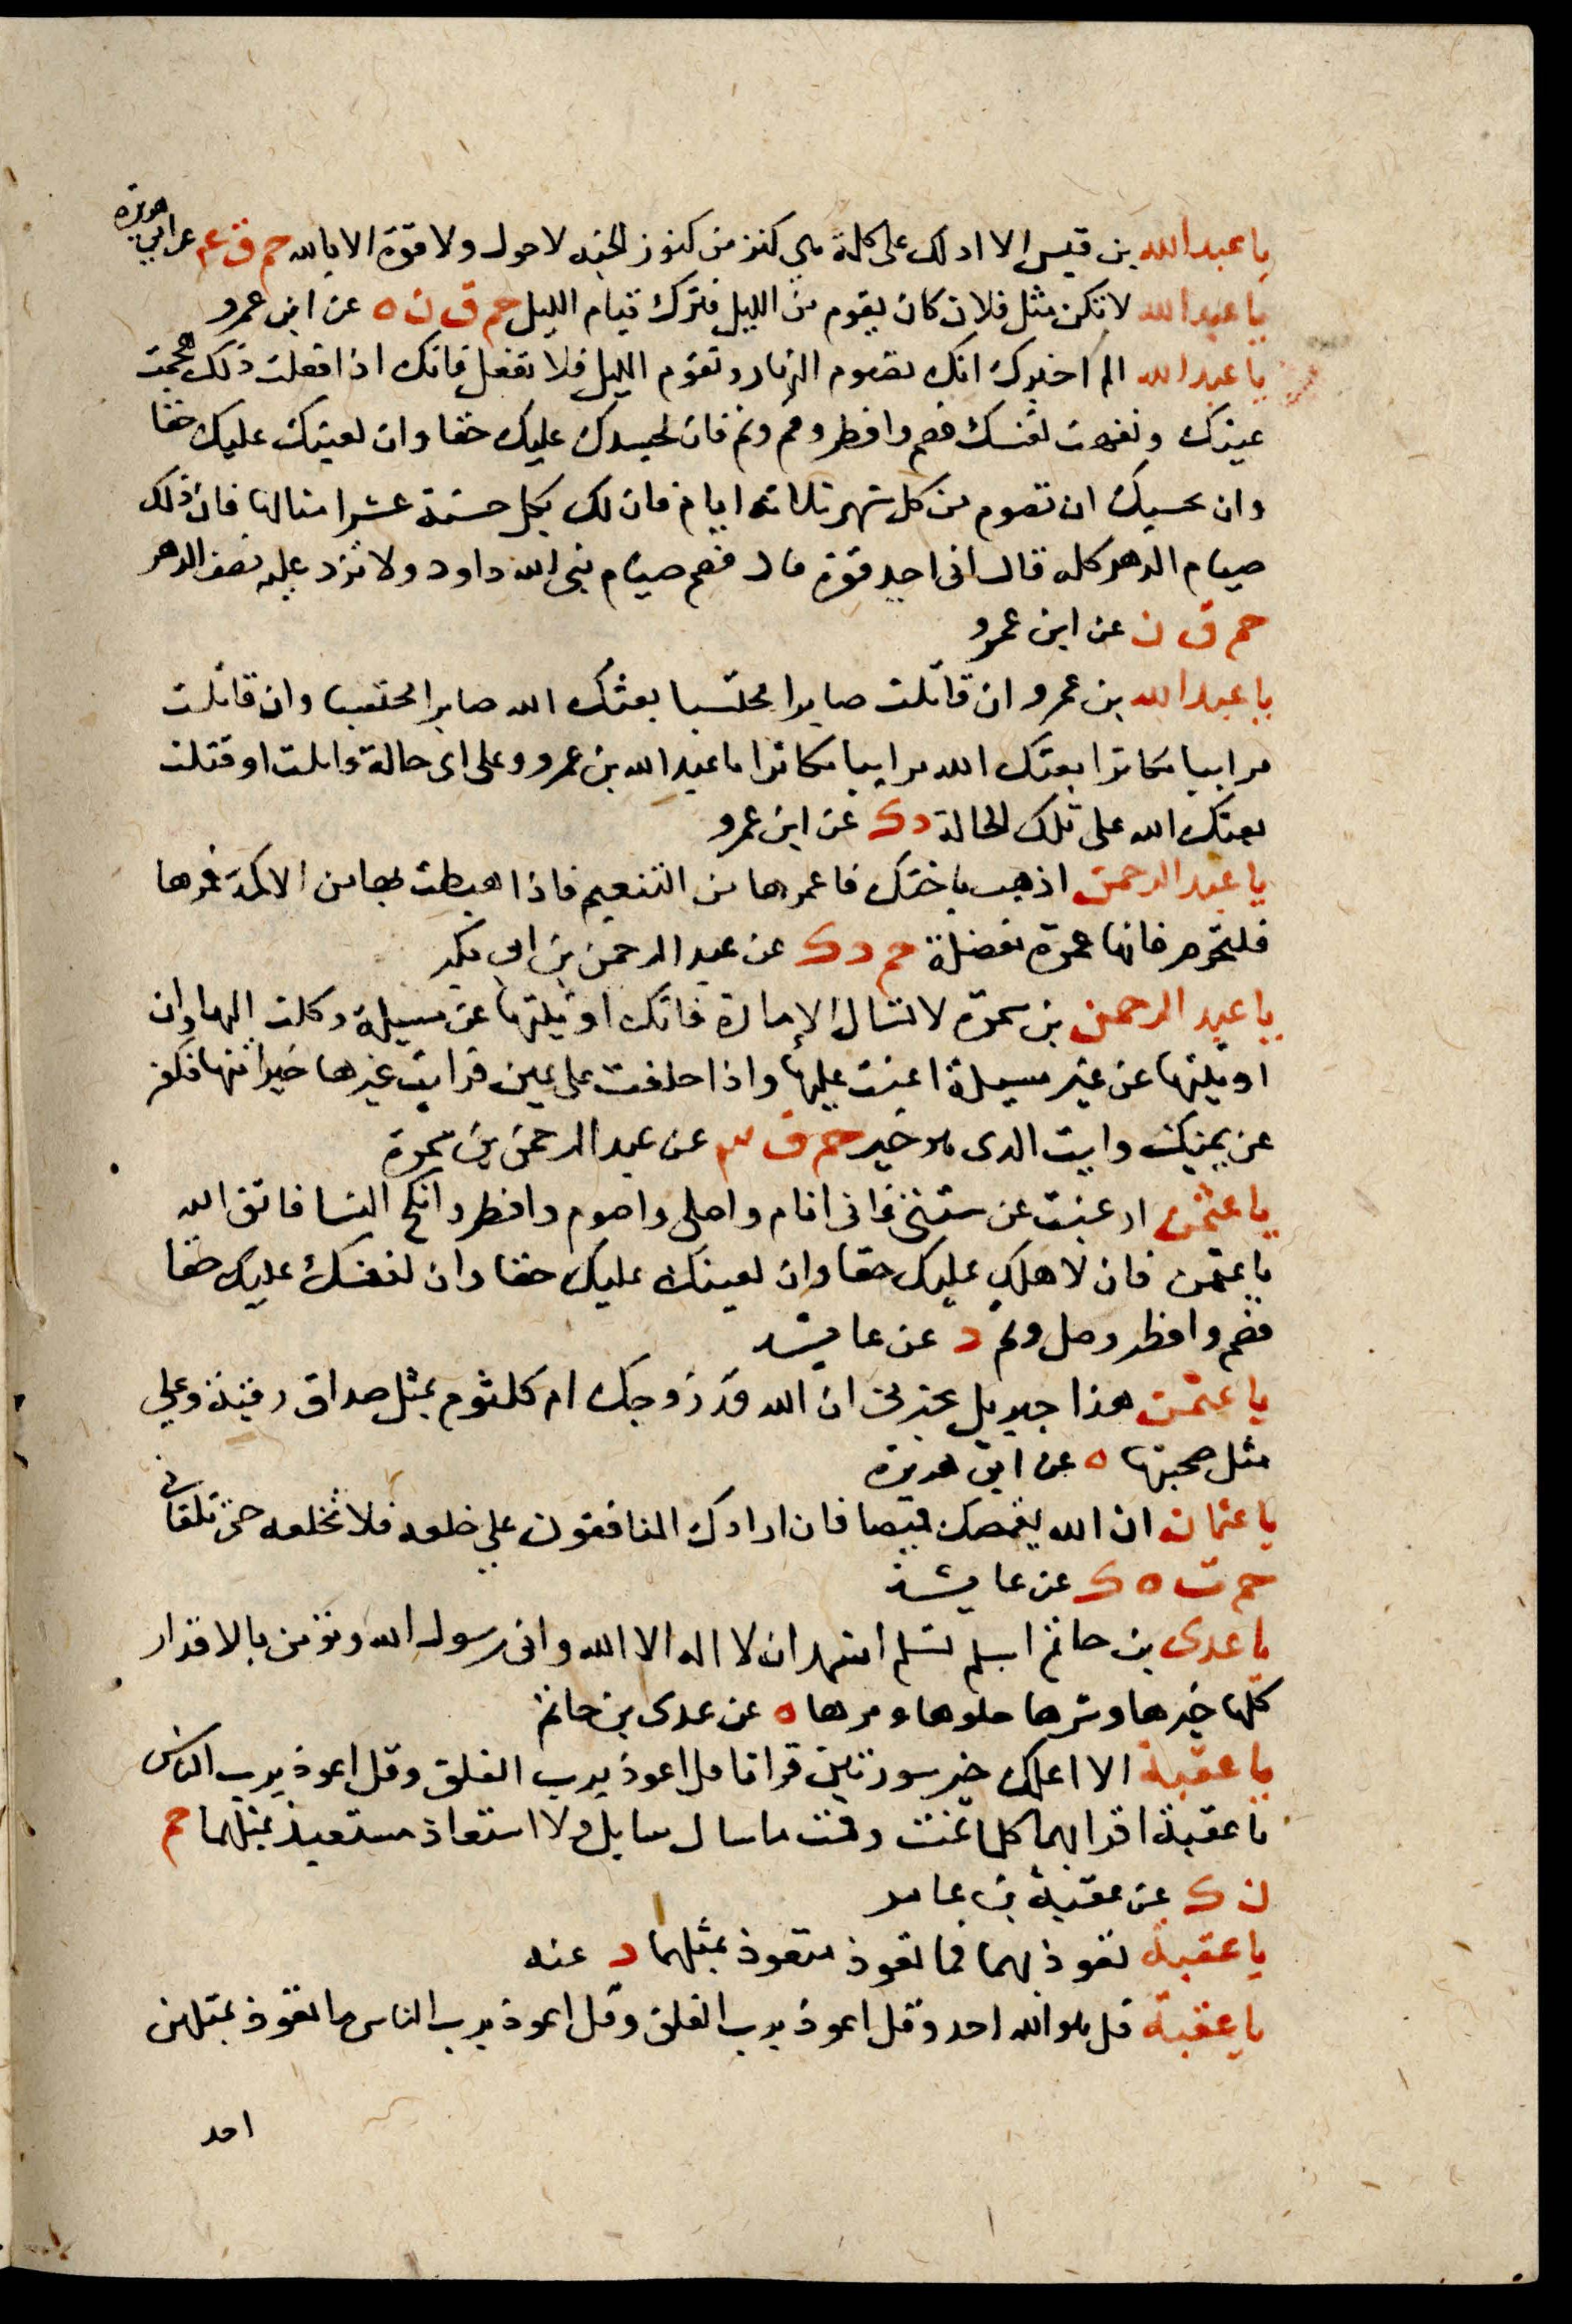 يا عبد الله بن قيس الا ادلك على كلمة هي كنز من كنوز الجنه لا حول ولا قوة الا بالله حم ق عه عن ابي هريرة
يا عبد الله لا تكن مثل فلان كان يقوم من الليل فترك قيام الليل حم ق ن ه عن ابن عمرو
يا عبد الله الم اخبرك انك تصوم النهار وتقوم الليل فلا تفعل فانك اذا فعلت ذلك هجمت
عينك ونفهت نفسك فصم وافطر وقم ونم فان لجسدك عليك حقا وان لعينك عليك حقا
وان بحسبك ان تصوم من كل شهر ثلاثه ايام فان لك بكل حسنة عشر امثالها فان ذلك
صيام الدهر كله قال انى اجد قوة قال فصم صيام نبى الله داود ولا تزد عليه نصف الدهر
حم ق ن عن ابن عمرو
يا عبد الله بن عمرو ان قاتلت صابرا محتسبا بعثك الله صابرا محتسبا وان قاتلت
مراييا مكاثرا بعثك الله مراييا مكاثرا يا عبد الله بن عمرو وعلى اى حالة قاتلت او قتلت
بعثك الله على تلك الحالة د ك عن ابن عمرو
يا عبد الرحمن اذهب باختك فاعمرها من التنعيم فاذا هبطت بها من الاكمة فمرها
فلتحرم فانها عمرة متقبلة حم د ك عن عبد الرحمن بن ابى بكر
يا عبد الرحمن بن سمرة لا تسال الامارة فانك ان اوتيتها عن مسيلة وكلت اليها وان
اوتيتها عن غير مسيلة اعنت عليها واذا حلفت على يمين فرايت غيرها خيرا منها فكفر
عن يمينك وايت الذى هو خير حم ق ٣ عن عبد الرحمن بن سمرة
يا عثمن ارغبت عن سنتى فانى انام واصلى واصوم وافطر وانكح النسا فاتق الله
يا عثمن فان لاهلك عليك حقا وان لعينك عليك حقا وان لنفسك عليك حقا
فصم وافطر وصل ونم د عن عايشه
يا عثمن هذا جبريل يخبرنى ان الله قد زوجك ام كلثوم بمثل صداق رقية وعلي
مثل صحبتها ه عن ابى هريرة
يا عثمان ان الله يقمصك قميصا فان ارادك المنافقون علي خلعه فلا تخلعه حتى تلقانى
حم ت ه ك عن عايشة
يا عدى بن حاتم اسلم تسلم اشهد ان لا اله الا الله وانى رسول الله وتؤمن بالاقدار
كلها خيرها وشرها حلوها ومرها ه عن عدى بن حاتم
يا عقبة الا اعلمك خير سورتين قراتا قل اعوذ برب الفلق وقل اعوذ برب الناس
يا عقبة اقرا بهما كلما نمت وقمت ما سال سايل ولا استعاذ مستعيذ بمثلهما حم
ن ك عن عقبة بن عامر
يا عقبة تعوذ بهما فما تعوذ متعوذ بمثلهما د عنه
يا عقبة قل هو الله احد وقل اعوذ برب الفلق وقل اعوذ برب الناس ما تعوذ بمثلهن
احد